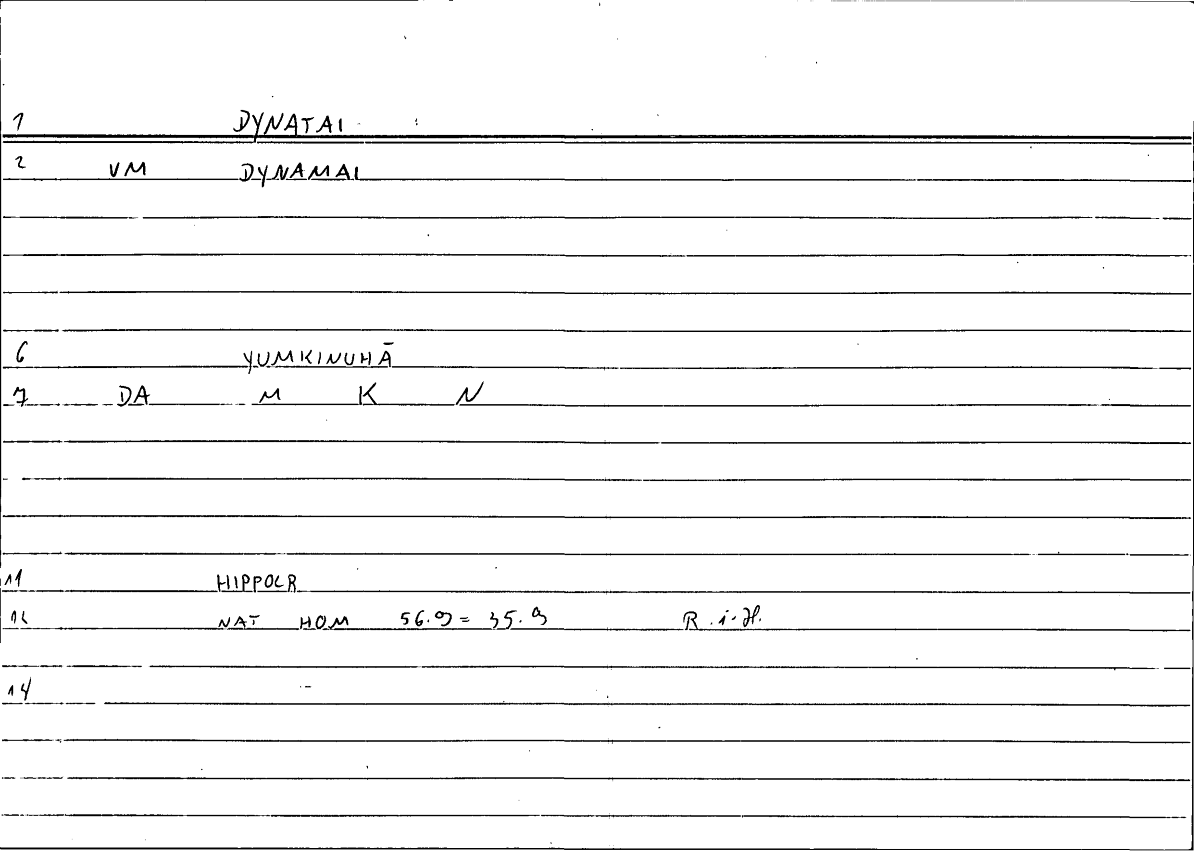 1 DYNATAI
2 VM DYNAMAI
6 YUMKINUHĀ
7 DA M K N
11 HIPPOCR
12 NAT HOM 56.9 = 35.9 R.i.H.
14